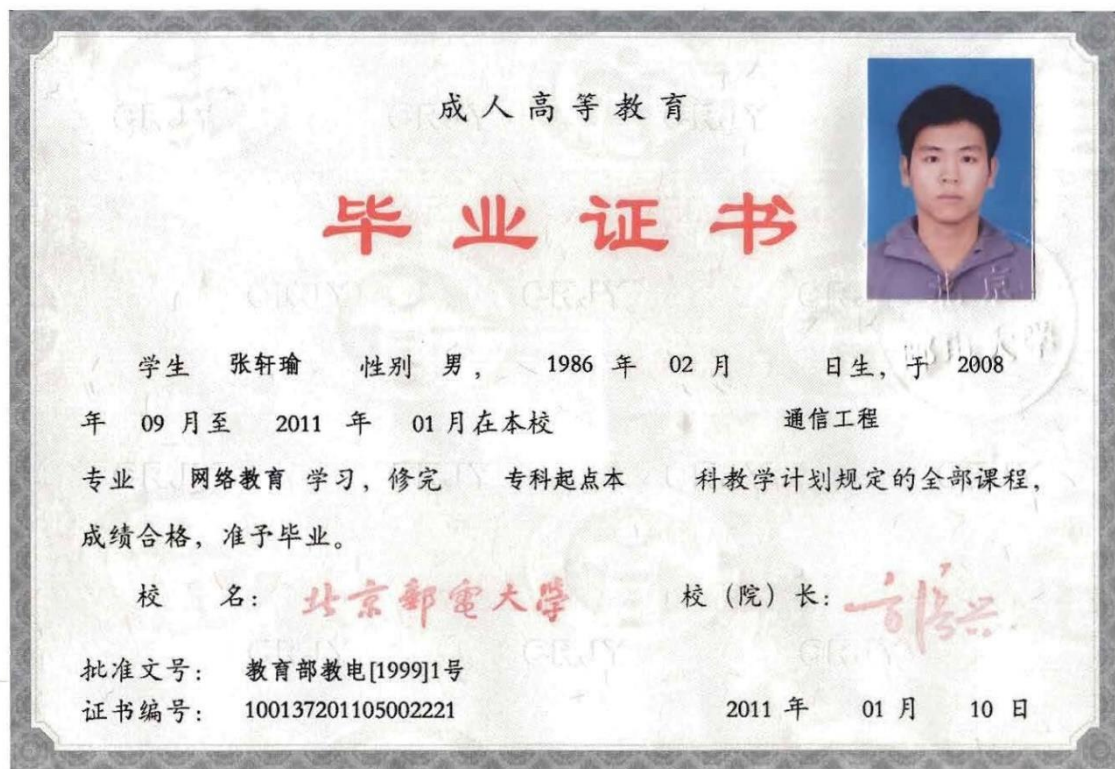 成人高等教育
毕业证书
学生 张轩瑜 性别 男， 1986 年 02 月 日生，于 2008
年 09 月至 2011 年 01 月在本校 通信工程
专业 网络教育 学习，修完 专科起点本 科教学计划规定的全部课程，
成绩合格，准予毕业。
校 名： 北京郵電大學 校（院）长： 方滨兴
批准文号： 教育部教电[1999]1号
证书编号： 100137201105002221 2011 年 01 月 10 日